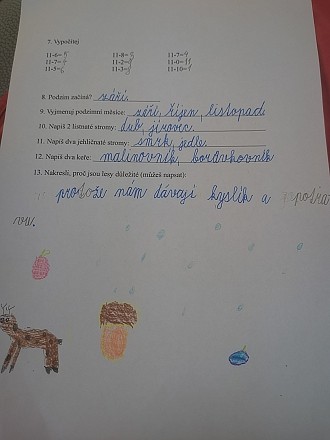 7. Vypočítej
11-6=5 11-8=3 11-7=4
11-7=4 11-2=9 11-0=11
11-5=6 11-3=8 11-10=1
8. Podzim začíná? září
9. Vyjmenuj podzimní měsíce: září, říjen, listopad
10. Napiš 2 listnaté stromy: dub, jírovec
11. Napiš dva jehličnaté stromy: smrk, jedle
12. Napiš dva keře: malinovník, borůvkovník
13. Nakresli, proč jsou lesy důležité (můžeš napsat):
protože nám dávají kyslík a potra
vu.